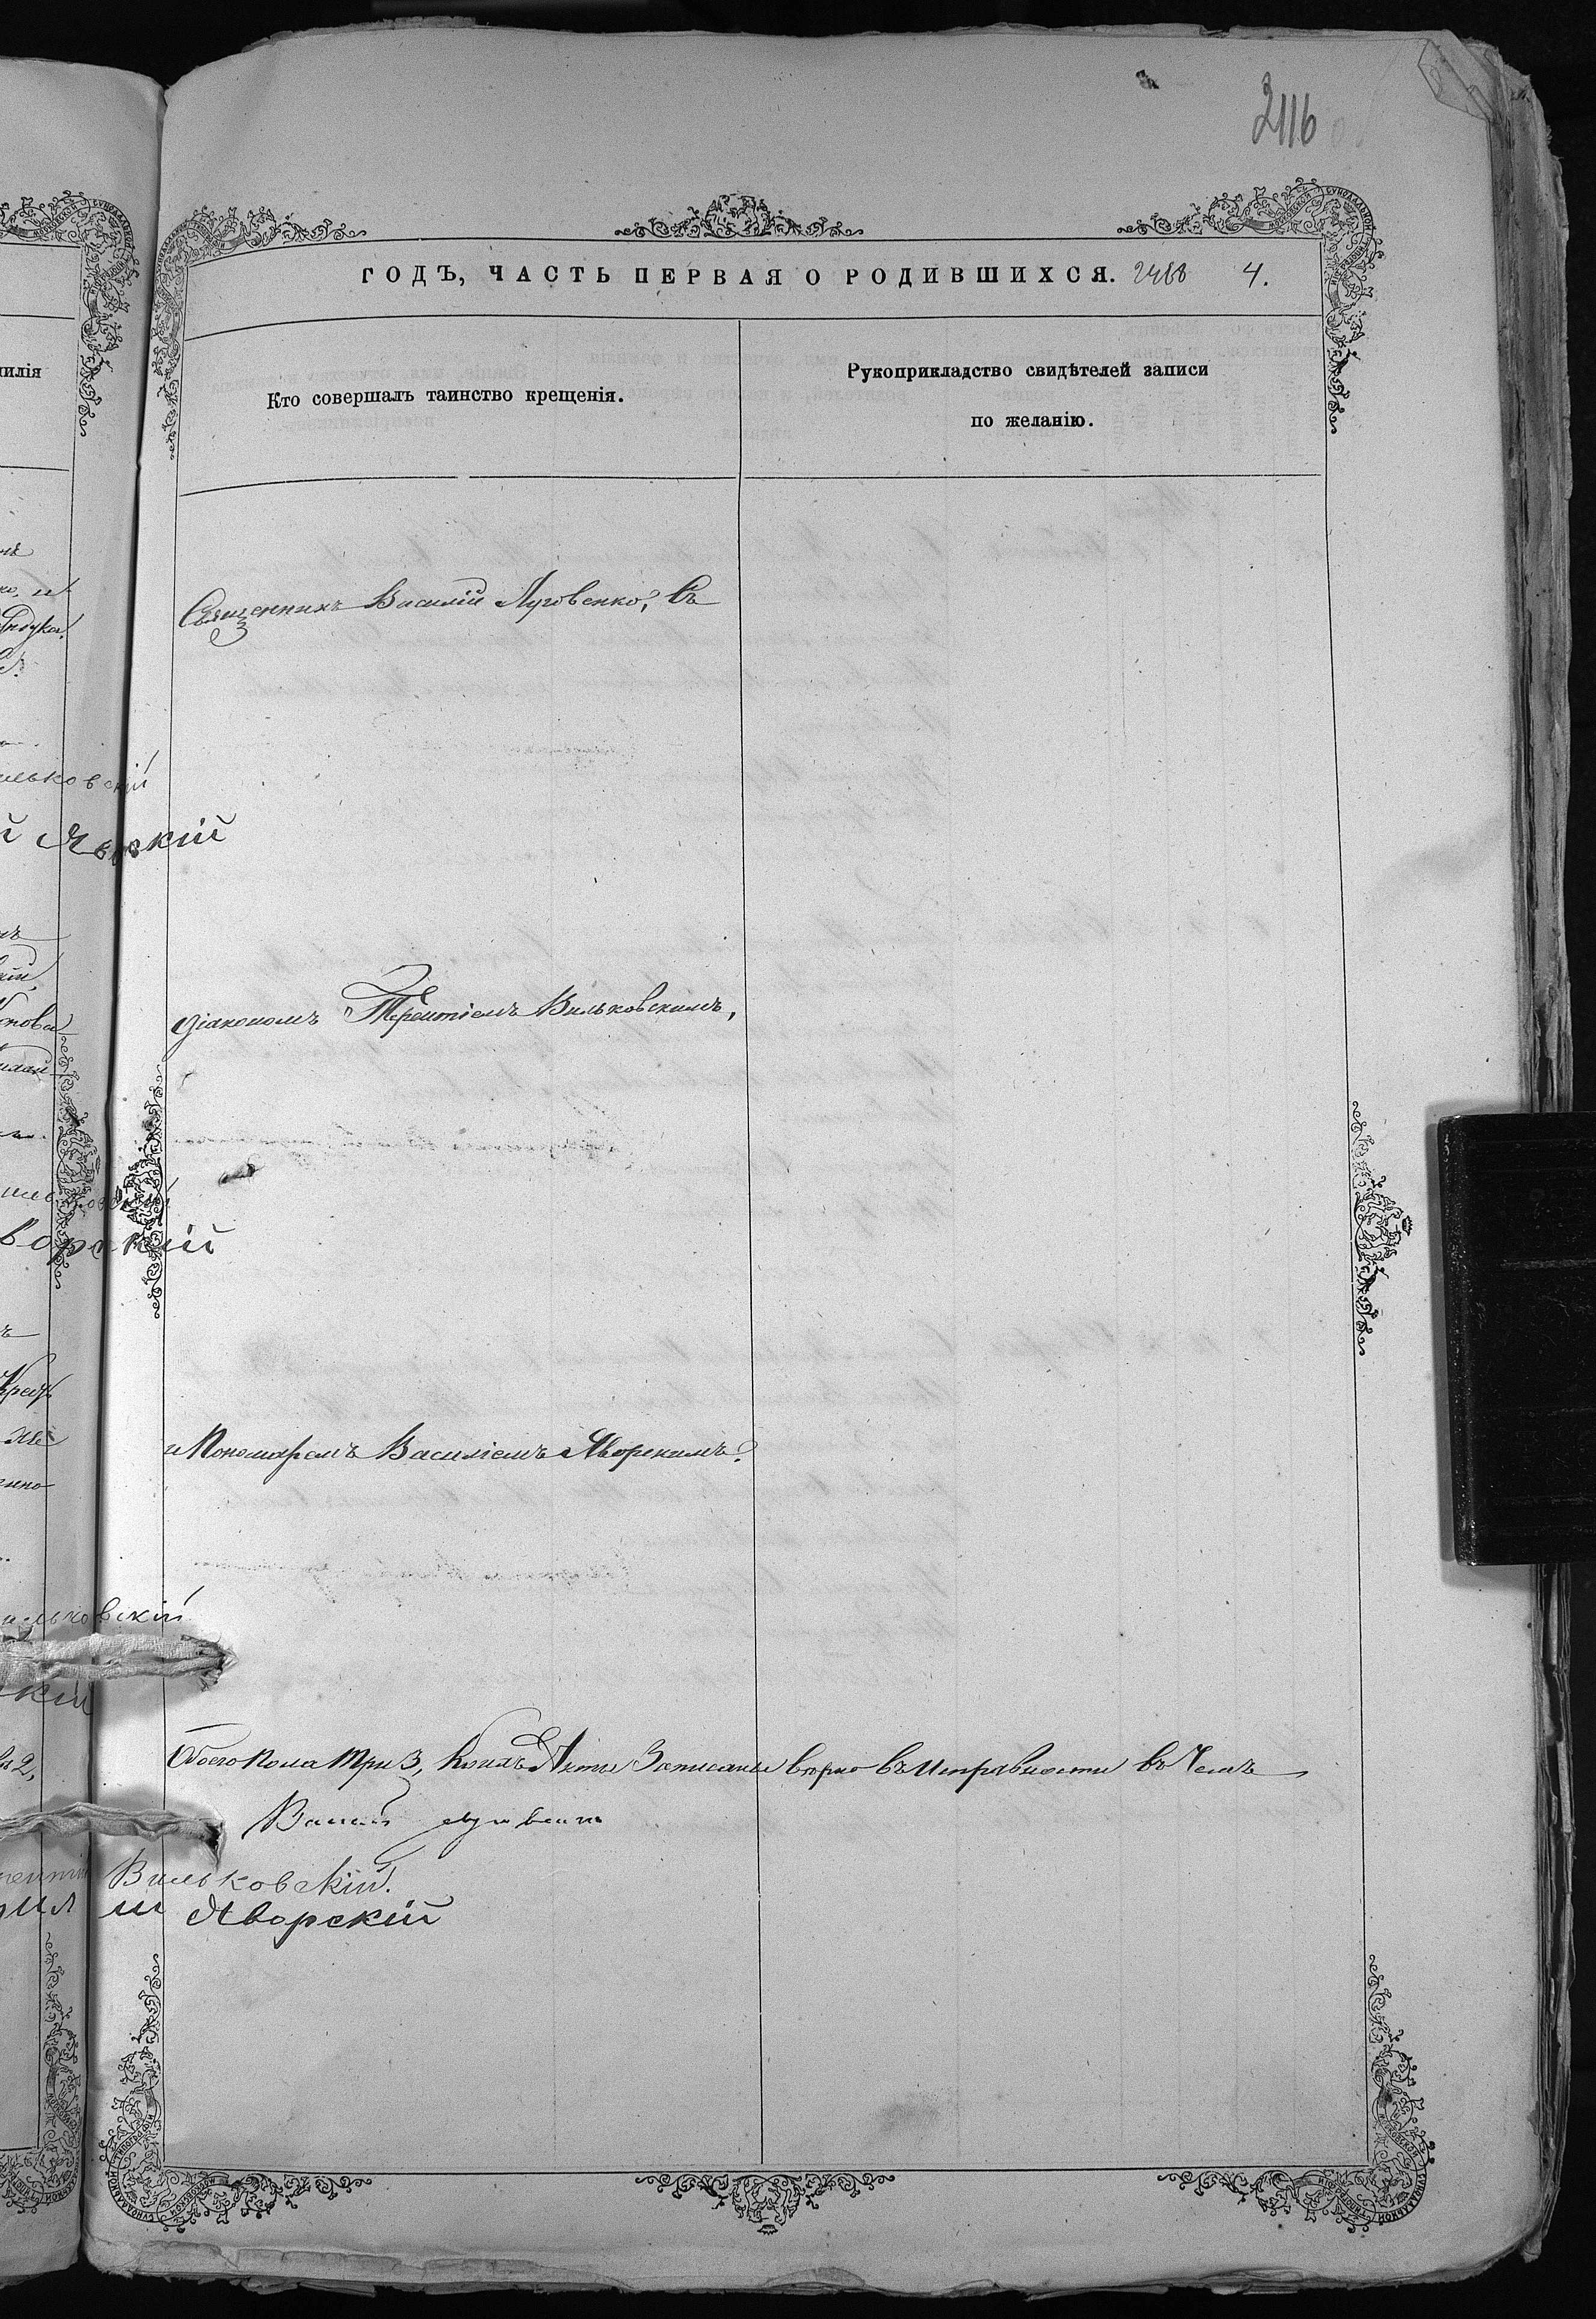 2116
ГОДЪ, ЧАСТЬ ПЕРВАЯ О РОДИВШИХСЯ. 2468 4.
Кто совершалъ таинство крещенія.
Рукоприкладство свидѣтелей записи
по желанію.
Священникъ Василій Луговенко, Съ
діакономъ Терентіемъ Вильковскимъ,
и Пономаремъ Василіемъ Яворскимъ.
Обоего пола три 3, Коихъ Акты Записаны вѣрно въ исправности въ Чемъ
Василій Луговенко
Вильковскій.
Яворскій